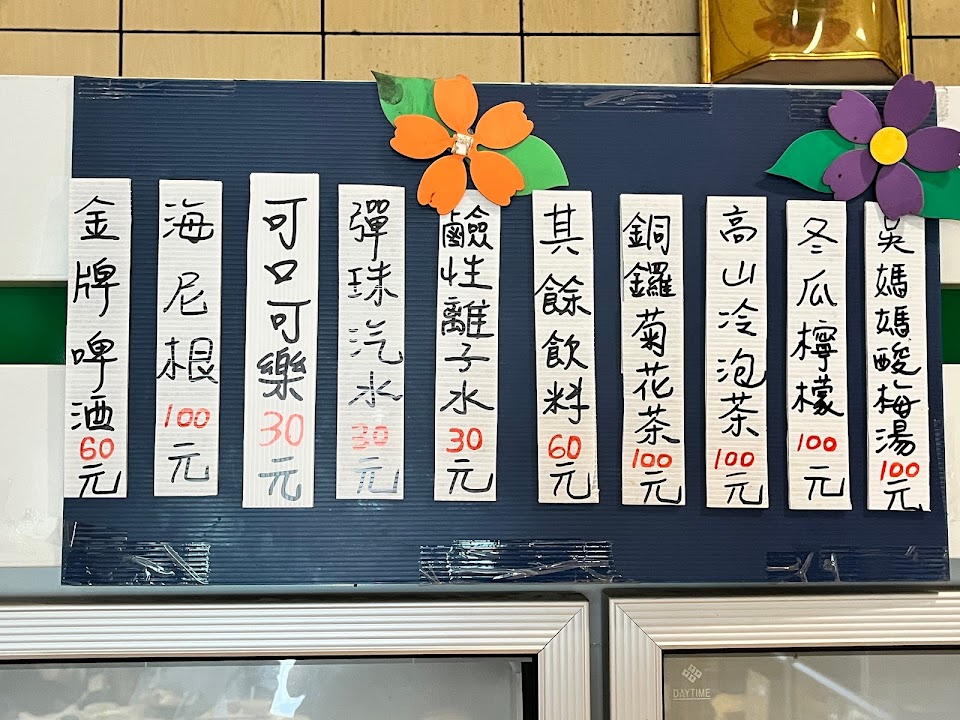 吳媽媽酸梅湯100元
冬瓜檸檬100元
高山冷泡茶100元
銅鑼菊花茶100元
其餘飲料60元
鹼性離子水30元
彈珠汽水30元
可口可樂30元
海尼根100元
金牌啤酒60元
DAYTIME